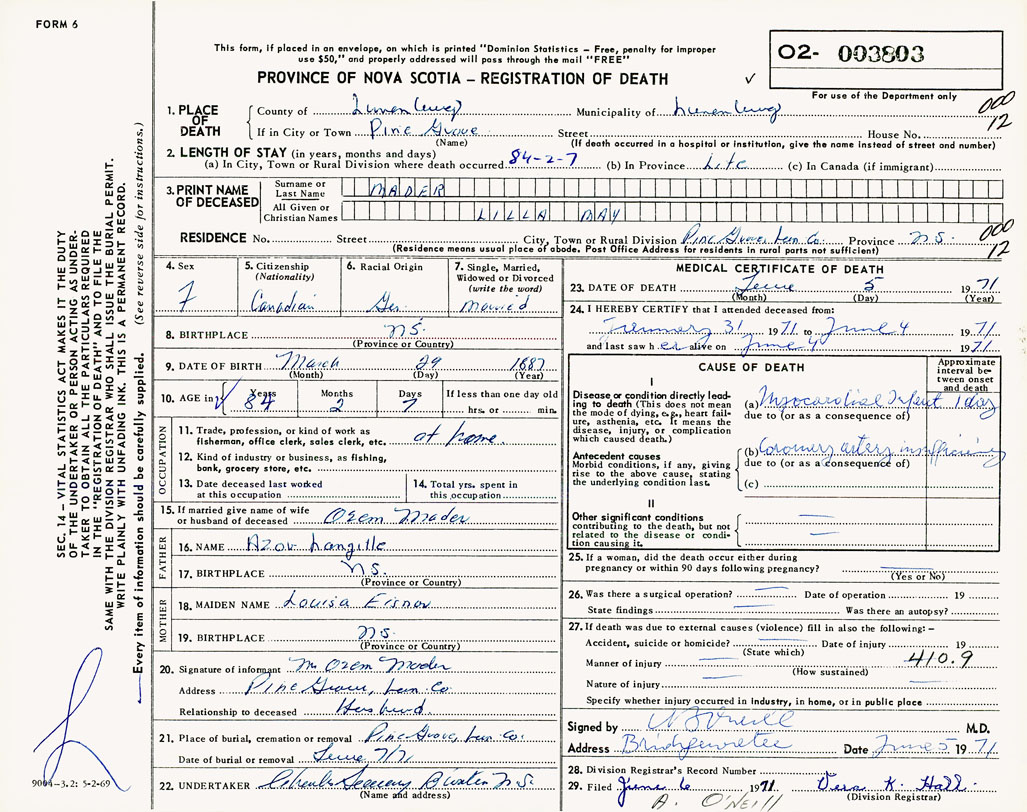 FORM 6
This form, if placed in an envelope, on which is printed "Dominion Statistics – Free, penalty for improper
use $50," and properly addressed will pass through the mail "FREE"
PROVINCE OF NOVA SCOTIA – REGISTRATION OF DEATH ✓
O2- 003803
For use of the Department only
000
12
1. PLACE OF DEATH
County of Lunenburg Municipality of Lunenburg
If in City or Town Pine Grove Street House No.
(Name) (If death occurred in a hospital or institution, give the name instead of street and number)
2. LENGTH OF STAY (in years, months and days)
(a) In City, Town or Rural Division where death occurred 84-2-7 (b) In Province Life (c) In Canada (if immigrant)
3. PRINT NAME OF DECEASED
Surname or Last Name MADER
All Given or Christian Names LILLA MAY
000
12
RESIDENCE No. Street City, Town or Rural Division Pine Grove, Lun. Co. Province N.S.
(Residence means usual place of abode. Post Office Address for residents in rural parts not sufficient)
4. Sex
F
5. Citizenship
(Nationality)
Canadian
6. Racial Origin
Ger.
7. Single, Married,
Widowed or Divorced
(write the word)
Married
8. BIRTHPLACE N.S.
(Province or Country)
9. DATE OF BIRTH March 29 1887
(Month) (Day) (Year)
10. AGE in Years Months Days If less than one day old
84 2 7 hrs. or min.
OCCUPATION
11. Trade, profession, or kind of work as
fisherman, office clerk, sales clerk, etc. at home
12. Kind of industry or business, as fishing,
bank, grocery store, etc.
13. Date deceased last worked
at this occupation
14. Total yrs. spent in
this occupation
15. If married give name of wife
or husband of deceased Orem Mader
FATHER
16. NAME Azov Langille
17. BIRTHPLACE N.S.
(Province or Country)
MOTHER
18. MAIDEN NAME Louisa Eisnor
19. BIRTHPLACE N.S.
(Province or Country)
20. Signature of informant Mr Orem Mader
Address Pine Grove, Lun. Co.
Relationship to deceased Husband
21. Place of burial, cremation or removal Pine Grove, Lun. Co.
Date of burial or removal June 7/71
22. UNDERTAKER B'water N.S.
(Name and address)
MEDICAL CERTIFICATE OF DEATH
23. DATE OF DEATH June 5 1971
(Month) (Day) (Year)
24. I HEREBY CERTIFY that I attended deceased from:
31 1971 to June 4 1971
and last saw her alive on June 4 1971
CAUSE OF DEATH
Approximate
interval be-
tween onset
and death
I
Disease or condition directly lead-
ing to death (This does not mean
the mode of dying, e.g., heart fail-
ure, asthenia, etc. It means the
disease, injury, or complication
which caused death.)
(a) Myocardial Infarct 1 day
due to (or as a consequence of)
Antecedent causes
Morbid conditions, if any, giving
rise to the above cause, stating
the underlying condition last.
(b) Coronary artery insufficiency
due to (or as a consequence of)
(c)
II
Other significant conditions
contributing to the death, but not
related to the disease or condi-
tion causing it.
25. If a woman, did the death occur either during
pregnancy or within 90 days following pregnancy?
(Yes or No)
26. Was there a surgical operation? Date of operation 19
State findings Was there an autopsy?
27. If death was due to external causes (violence) fill in also the following:–
Accident, suicide or homicide? Date of injury 19
(State which)
410.9
Manner of injury
(How sustained)
Nature of injury
Specify whether injury occurred in Industry, in home, or in public place
Signed by W B O'Neill M.D.
Address Bridgewater Date June 5 1971
28. Division Registrar's Record Number
29. Filed June 6 1971 Vera K. Hall
(Division Registrar)
A. O'NEILL
SEC. 14 – VITAL STATISTICS ACT MAKES IT THE DUTY
OF THE UNDERTAKER OR PERSON ACTING AS UNDER-
TAKER TO OBTAIN ALL THE PARTICULARS REQUIRED
IN THE "REGISTRATION OF DEATH" AND TO FILE THE
SAME WITH THE DIVISION REGISTRAR WHO SHALL ISSUE THE BURIAL PERMIT.
WRITE PLAINLY WITH UNFADING INK. THIS IS A PERMANENT RECORD.
Every item of information should be carefully supplied. (See reverse side for instructions.)
9004-3.2: 5-2-69